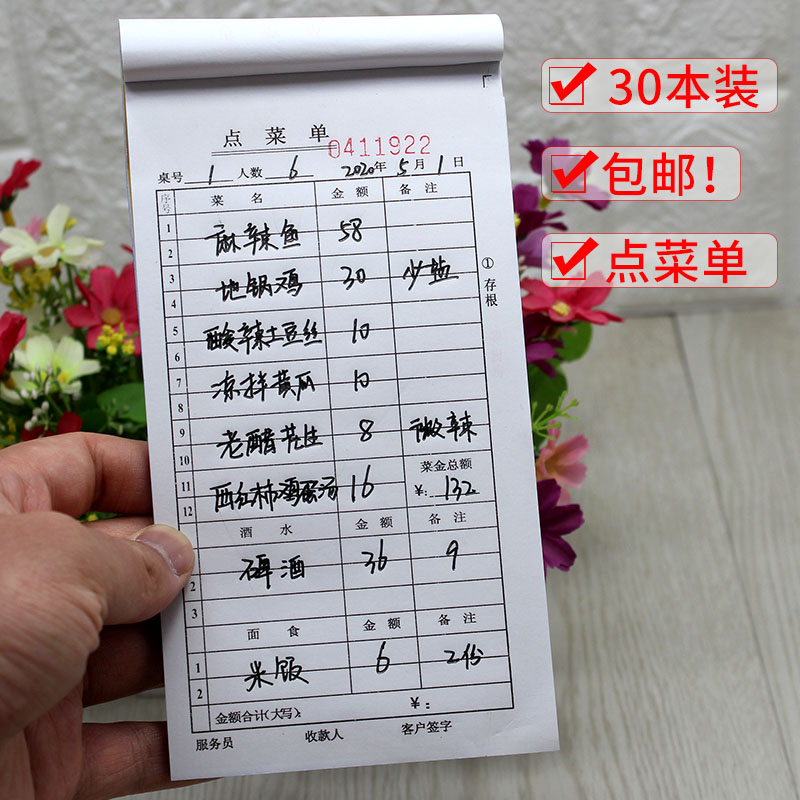 30本装
包邮！
点菜单
点菜单
0411922
桌号 1 人数 6 2020年 5月 1日
序号 菜名 金额 备注
1
麻辣鱼 58
2
3
地锅鸡 30 少盐
4
5
酸辣土豆丝 10
6
7
凉拌黄瓜 10
8
9
老醋花生 8 微辣
10
11 菜金总额
西红柿鸡蛋汤 16 ¥: 132
12
酒水 金额 备注
啤酒 36 9
2
3
面食 金额 备注
1
米饭 6 2份
2
金额合计(大写): ¥:
服务员 收款人 客户签字
①存根